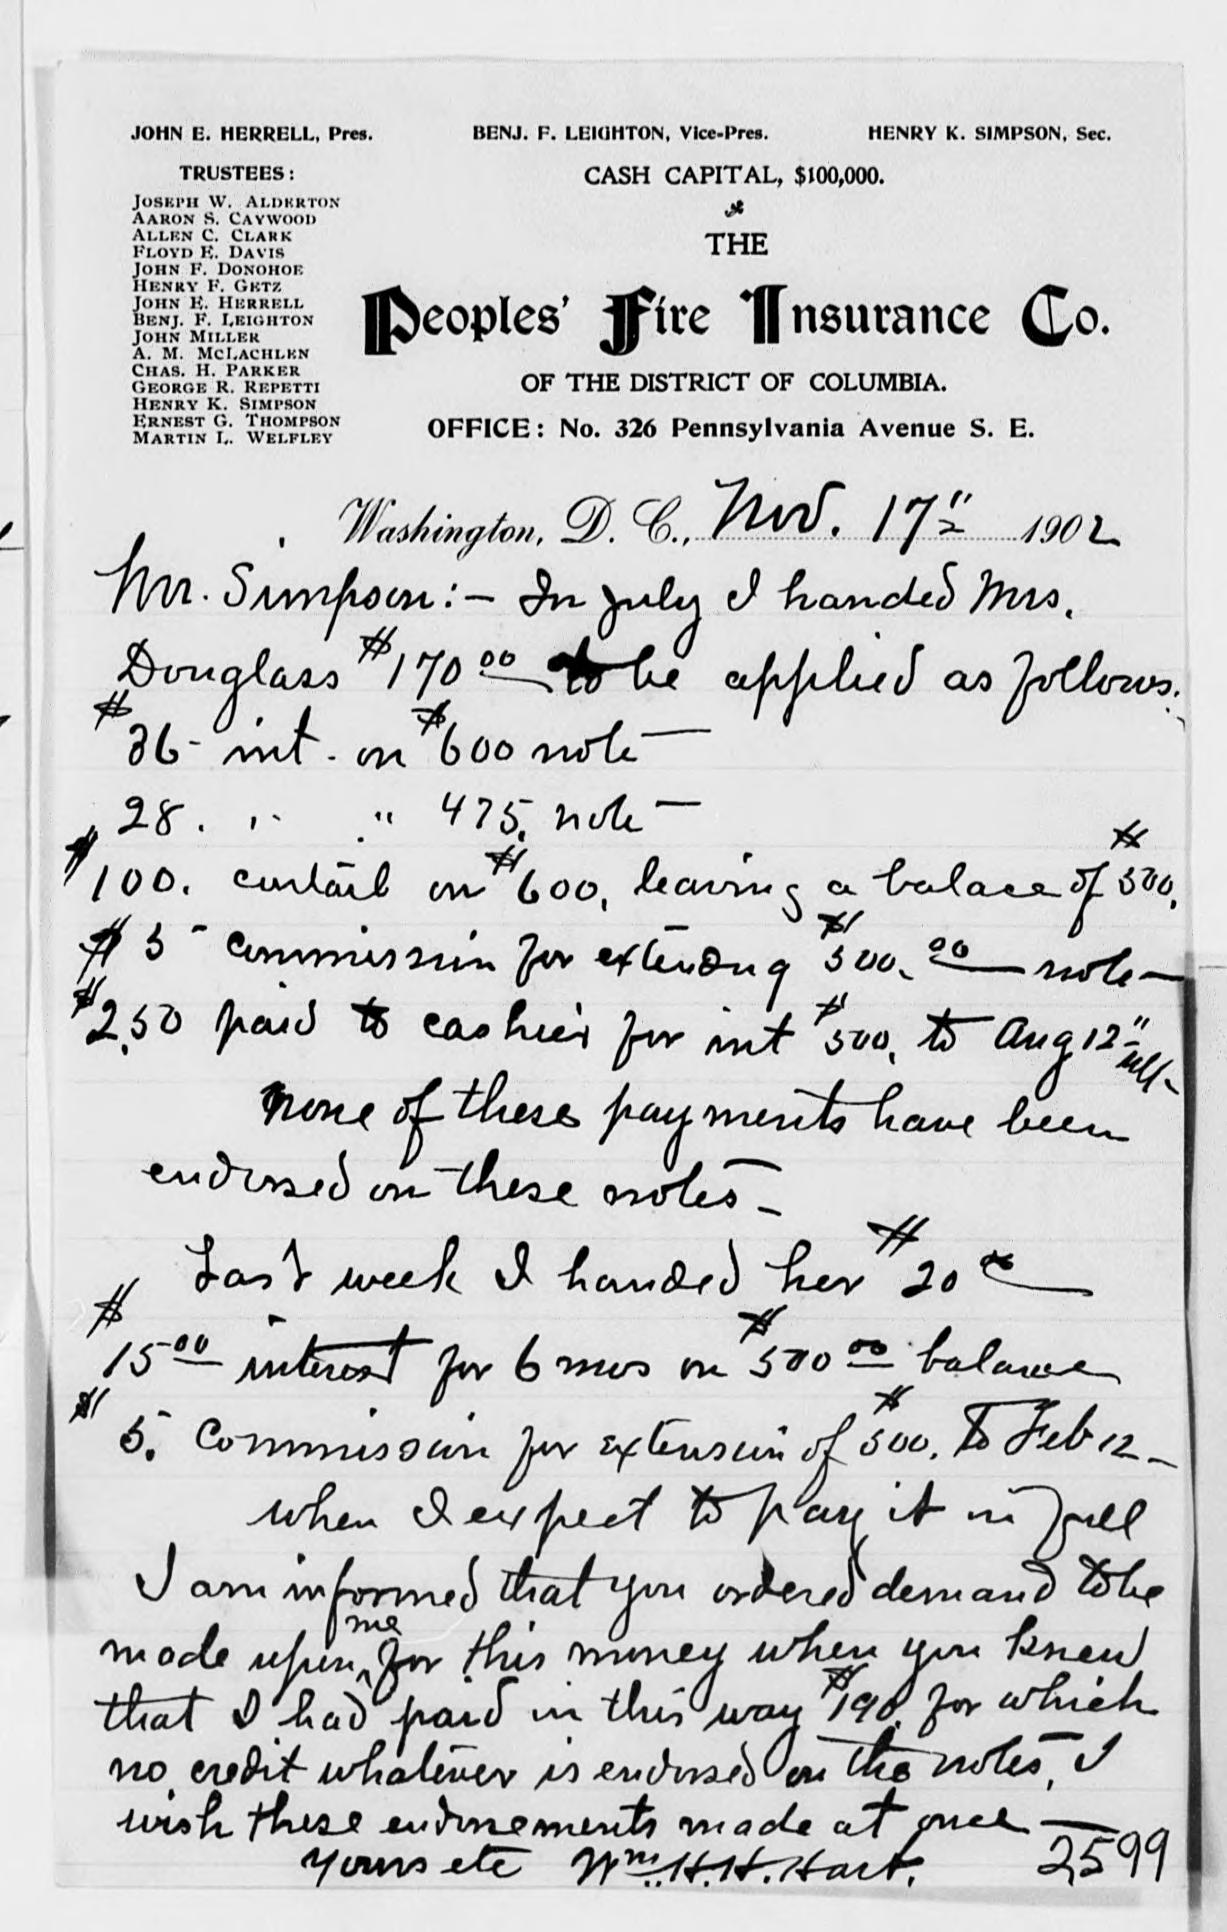 JOHN E. HERRELL, Pres. BENJ. F. LEIGHTON, Vice-Pres. HENRY K. SIMPSON, Sec.
TRUSTEES:
JOSEPH W. ALDERTON
AARON S. CAYWOOD
ALLEN C. CLARK
FLOYD E. DAVIS
JOHN F. DONOHOE
HENRY F. GETZ
JOHN E. HERRELL
BENJ. F. LEIGHTON
JOHN MILLER
A. M. MCLACHLEN
CHAS. H. PARKER
GEORGE R. REPETTI
HENRY K. SIMPSON
ERNEST G. THOMPSON
MARTIN L. WELFLEY
CASH CAPITAL, $100,000.
THE
Peoples' Fire Insurance Co.
OF THE DISTRICT OF COLUMBIA.
OFFICE: No. 326 Pennsylvania Avenue S. E.
Washington, D. C., Nov. 17" 1902
Mr. Simpson:- In July I handed Mrs.
Douglass $170 00 to be applied as follows:
$36- int. on $600 note-
28. " " 475. note-
$100. curtail on $600, leaving a balace of $500.
$5- commission for extending $500.00 note-
$2.50 paid to cashier for int $500. to Aug 12" ult-
None of these payments have been
endorsed on these notes-
Last week I handed her $20 00
$15 00 interest for 6 mos on $500 00 balance
$5. Commission for extension of $500. to Feb 12-
when I expect to pay it in full
I am informed that you ordered demand to be
made upon me for this money when you knew
that I had paid in this way $190. for which
no credit whatever is endorsed on the notes, I
wish these endorsements made at once-
Yours etc Wm. H. H. Hart.
2599